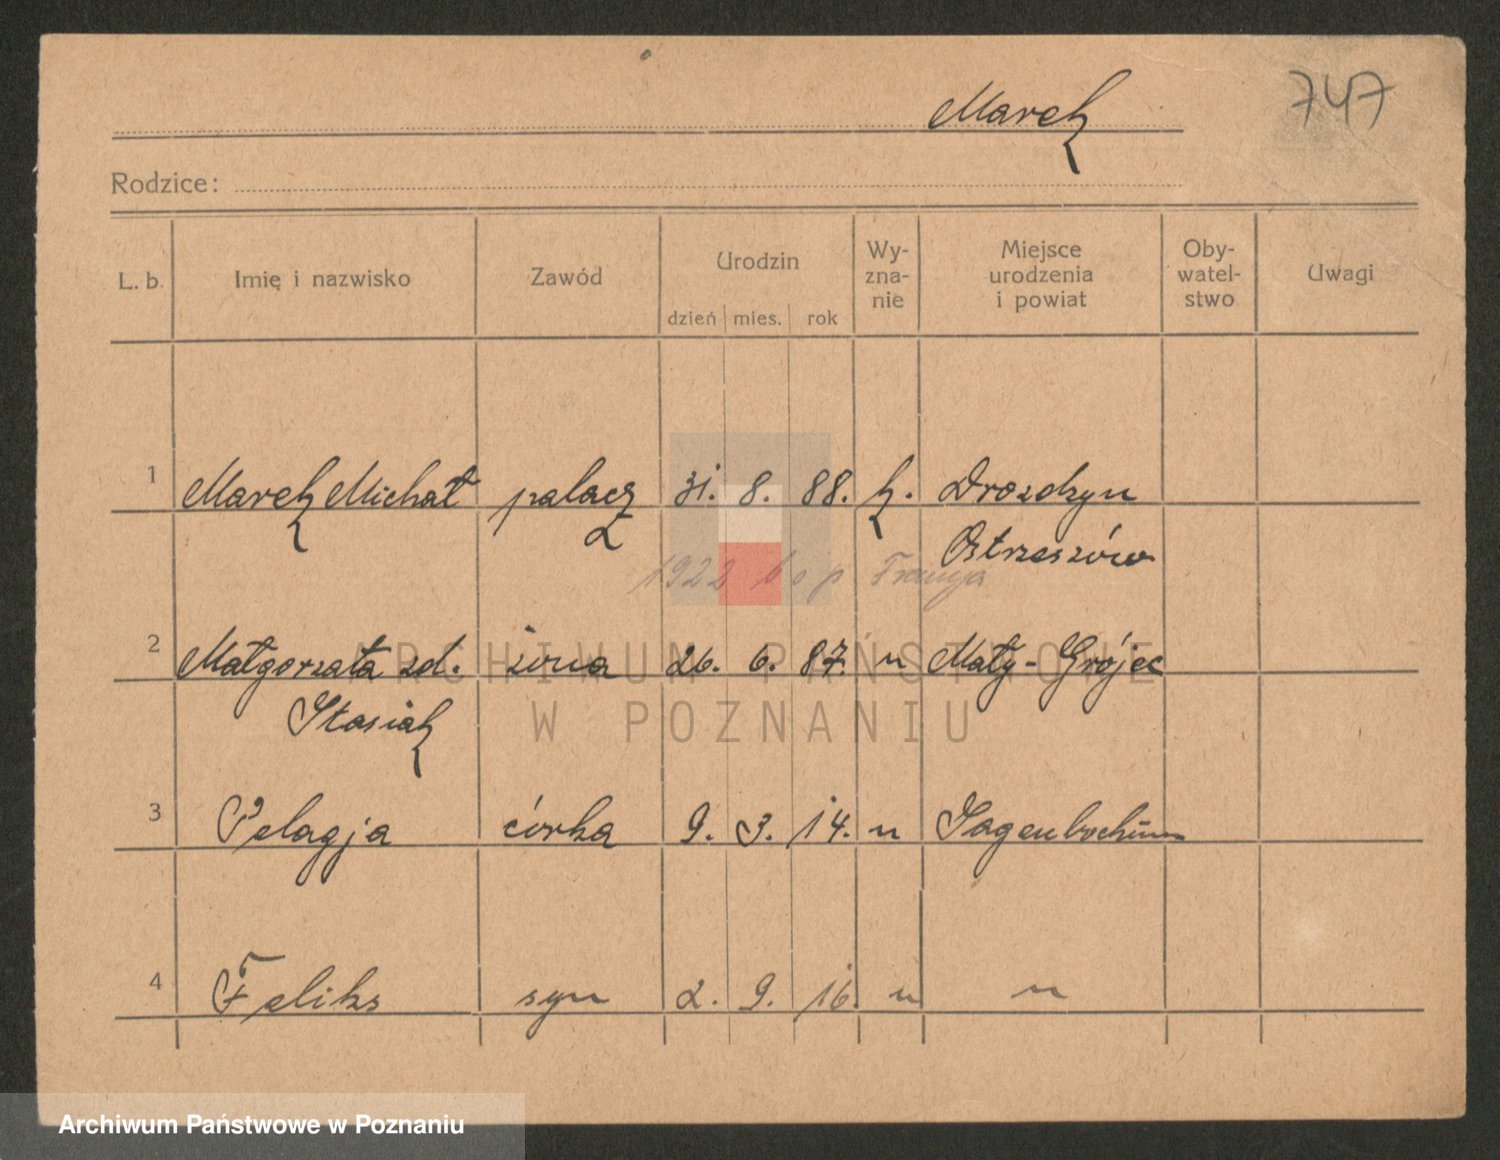 Marek
747
Rodzice:
L. b. Imię i nazwisko Zawód Urodzin dzień mies. rok Wy-zna-nie Miejsce urodzenia i powiat Oby-watel-stwo Uwagi
1 Marek Michał palacz 31. 8. 88. k. Drożdżyn
Ostrzeszów
1922 Francja
2 Małgorzata zd. żona 26. 6. 87. " Mały-Grójec
Stasiak
3 Pelagja córka 9. 3. 14. "
4 Feliks syn 2. 9. 16. " "
ARCHIWUM PAŃSTWOWE
W POZNANIU
Archiwum Państwowe w Poznaniu